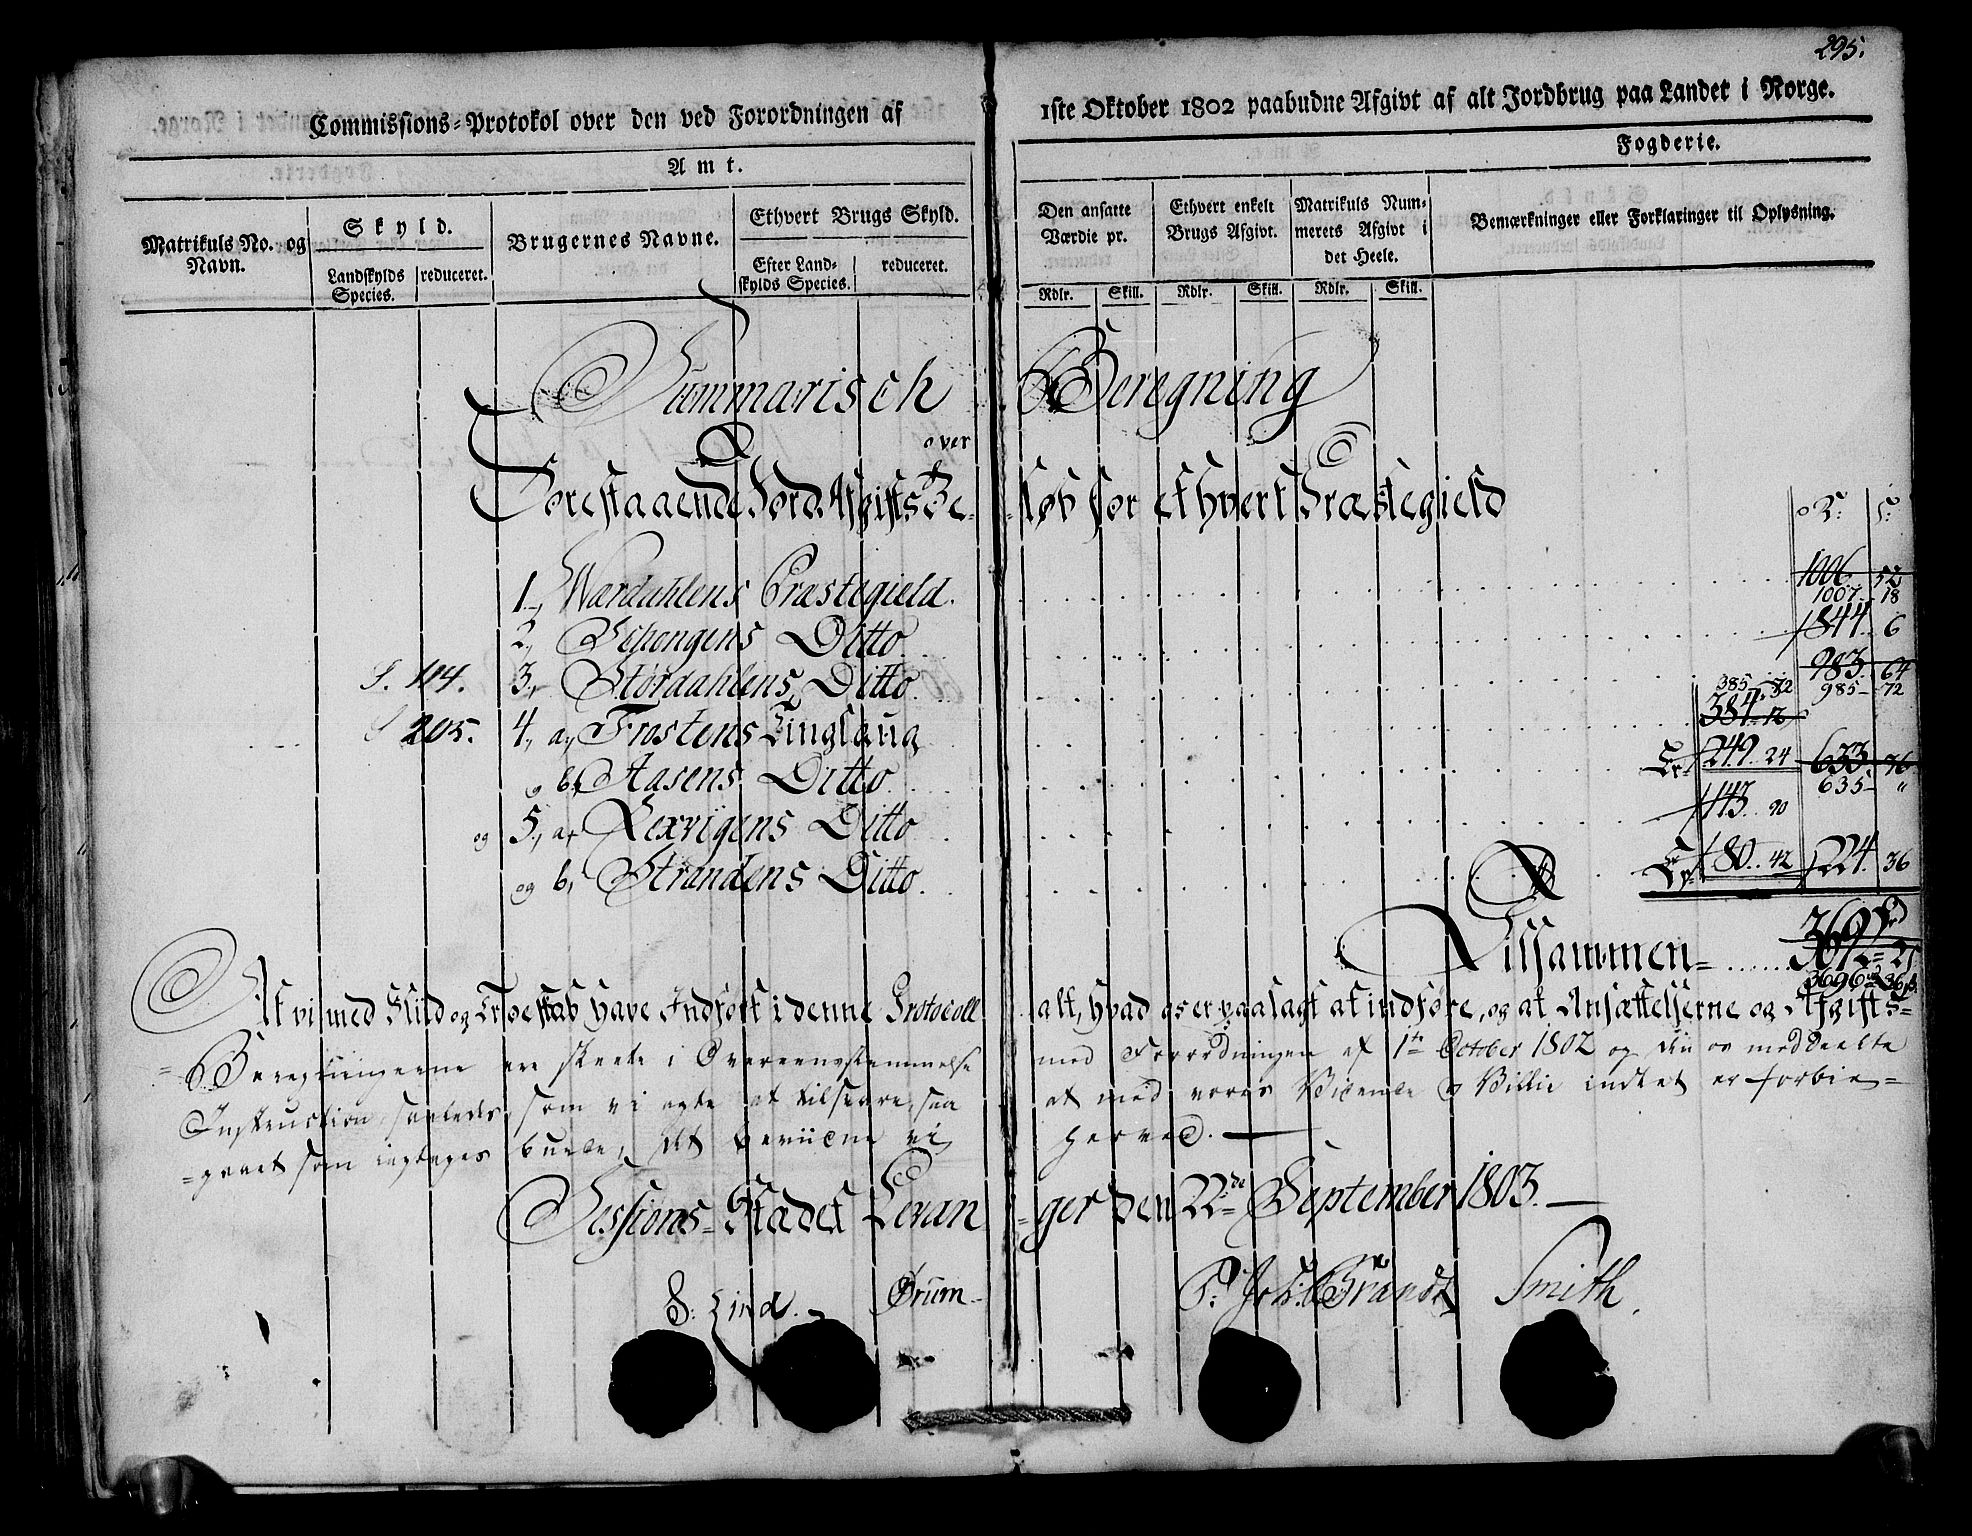 295.
Commissions=Protokol over den ved Forordningen af 1ste Oktober 1802 paabudne Afgivt af alt Jordbrug paa Landet i Norge.
Amt. Fogderie.
Matrikuls No. og Navn.
Skyld.
Landskylds Species.
reduceret.
Brugernes Navne.
Ethvert Brugs Skyld.
Efter Landskylds Species.
reduceret.
Den ansatte Værdie pr.
Ethvert enkelt Brugs Afgivt.
Matrikuls Nummerets Afgivt i det Heele.
Bemærkninger eller Forklaringer til Oplysning.
Rdlr. Skill. Rdlr. Skill. Rdlr. Skill.
Summarisch Beregning
over
Forestaaende Jord Afgifts Beløb for ethvert Præstegield
1., Wardahlens Præstegield. 1006 52
1007 - 18
2., Schongens Ditto 844 6
f. 114. 3., Størdahlens Ditto 983 64
385 - 72 985 - 72
205. 4., a, Frostens Tinglaug 384
og b, Aasens Ditto 249. 24 633 76
635 - "
og 5., a, Lexvigens Ditto 143. 90
og b, Strandens Ditto 80. 42 224. 36
Tilsammen
3696 36
At vi med Flid og Troeskab have Indført i denne Protocoll alt, hvad os er paalagt at indføre, og at Ansættelserne og Afgifts=
=Beregningerne ere skeete i Overeensstemmelse med Forordningen af 1te October 1802 og den os meddeelte
Instruction, saaledes som vi agte at tilsvare, saa at med vores Vidende og Villie indtet er forbie=
=gaaet som iagtages burde, det bevidne vi herved.
Sessions=Stædet Levanger den 22de September 1803.
S: Lind. Ørum P: Joh: Brandt Smith